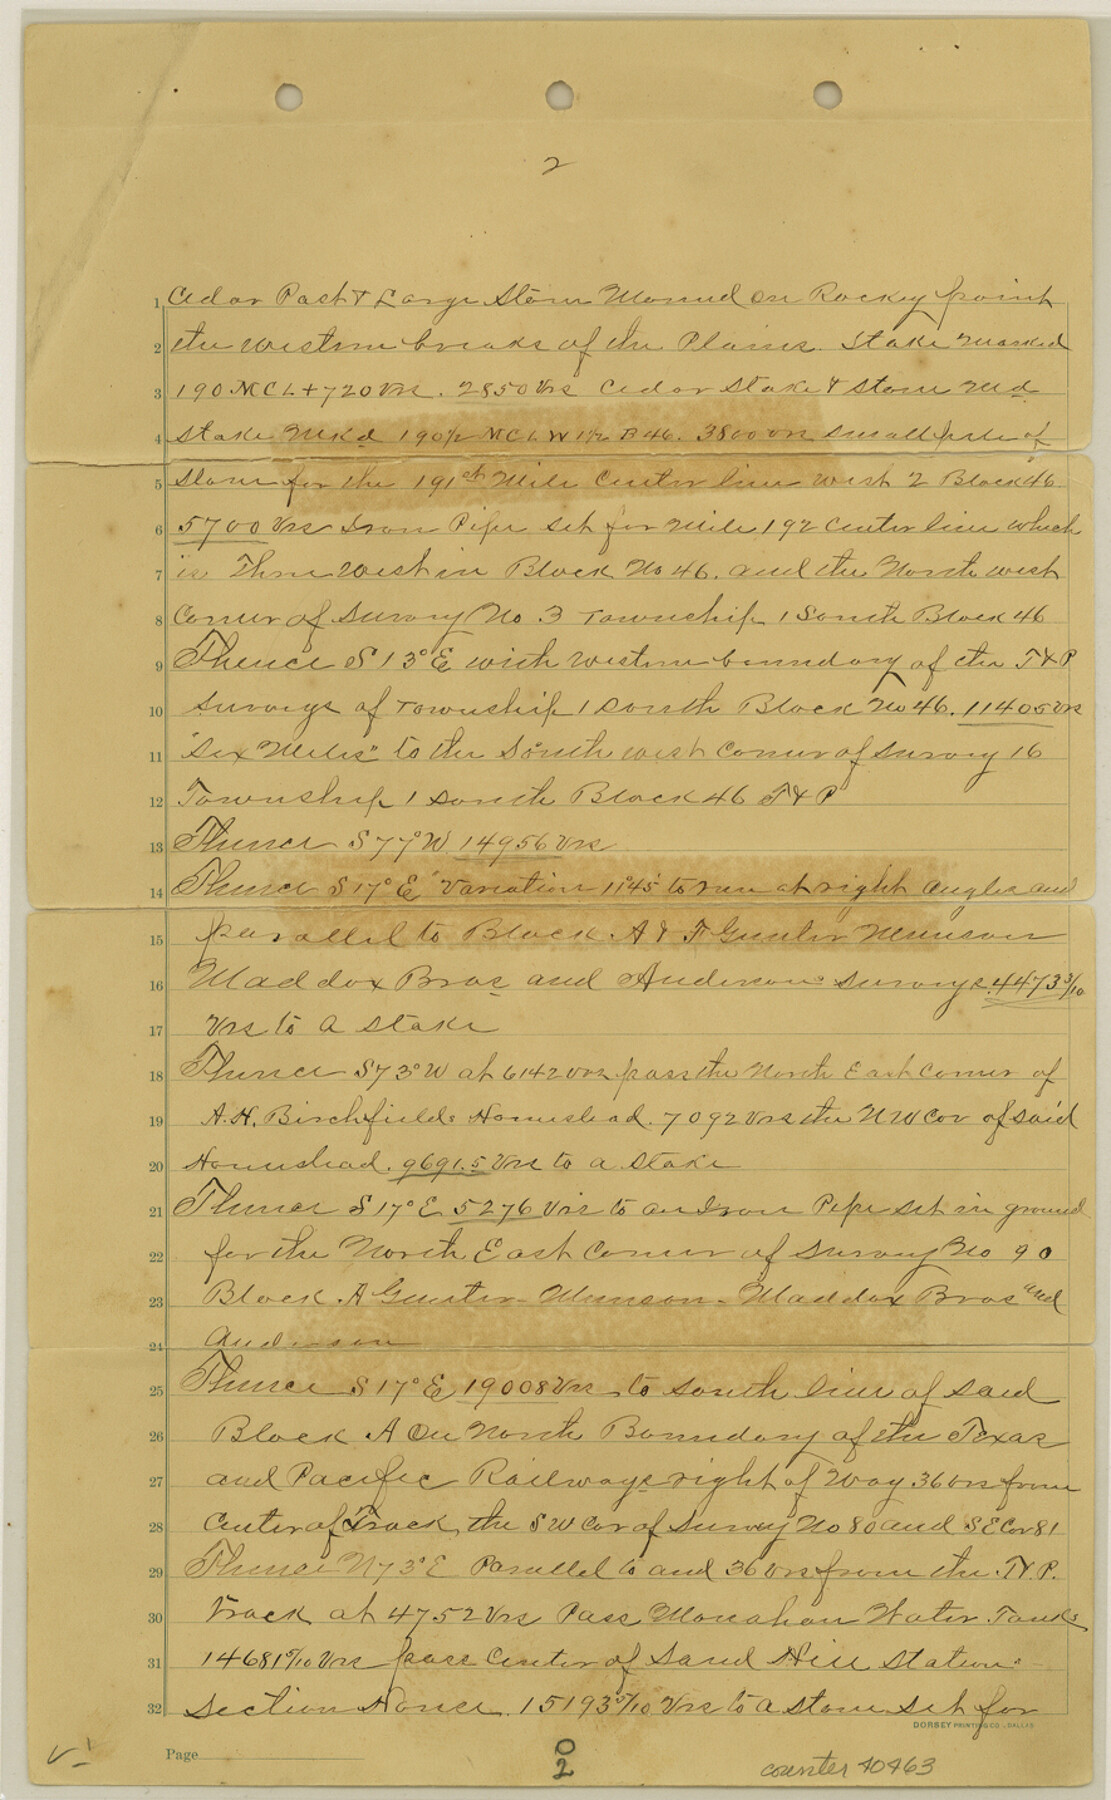 2
1 Cedar Post & Large Stone Mound on Rocky point
2 the western breaks of the Plains. Stake marked
3 190 M C L + 720 Vrs. 2850 Vrs Cedar Stake & Stone Md
4 Stake Mkd 190½ M C L W 1½ B 46. 3800 vrs small pile of
5 stone for the 191st Mile Center line west 2 Block 46
6 5700 Vrs Iron Pipe set for Mile 192 Center line which
7 is Three west in Block No 46. and the North west
8 Corner of Survey No 3 Township 1 South Block 46
9 Thence S 13° E with western boundary of the T & P
10 Surveys of Township 1 South Block No 46. 11405 Vrs
11 "Six Miles" to the South west Corner of Survey 16
12 Township 1 South Block 46 T & P
13 Thence S 77° W 14956 Vrs
14 Thence S 17° E "Variation 11°45' to run at right angles and
15 parallel to Block A & F Gunter Munson
16 Maddox Bros and Anderson Surveys. 4473 3/10
17 Vrs to a stake
18 Thence S 73° W at 6142 vrs pass the North East Corner of
19 A. H. Birchfields Homestead. 7092 Vrs the N W Cor of said
20 Homestead. 9691.5 Vrs to a stake
21 Thence S 17° E 5276 Vrs to an Iron Pipe set in ground
22 for the North East Corner of Survey No 90
23 Block A Gunter Munson Maddox Bros and
24 Anderson
25 Thence S 17° E 19008 Vrs to south line of said
26 Block A on North Boundary of the Texas
27 and Pacific Railways right of Way 36 vrs from
28 Center of Track, the S W Cor of Survey No 80 and S E Cor 81
29 Thence N 73° E Parallel to and 36 vrs from the T. & P.
30 Track at 4752 Vrs Pass Monahan Water Tanks
31 14681 /10 Vrs pass Center of Sand Hill Station
32 Section House. 15193 /10 Vrs to a stone set for
DORSEY PRINTING CO., DALLAS
Page
0
2
counter 40463